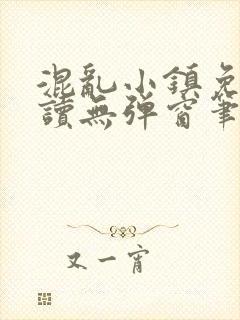 混亂小鎮免
讀無彈窗筆
又一宵